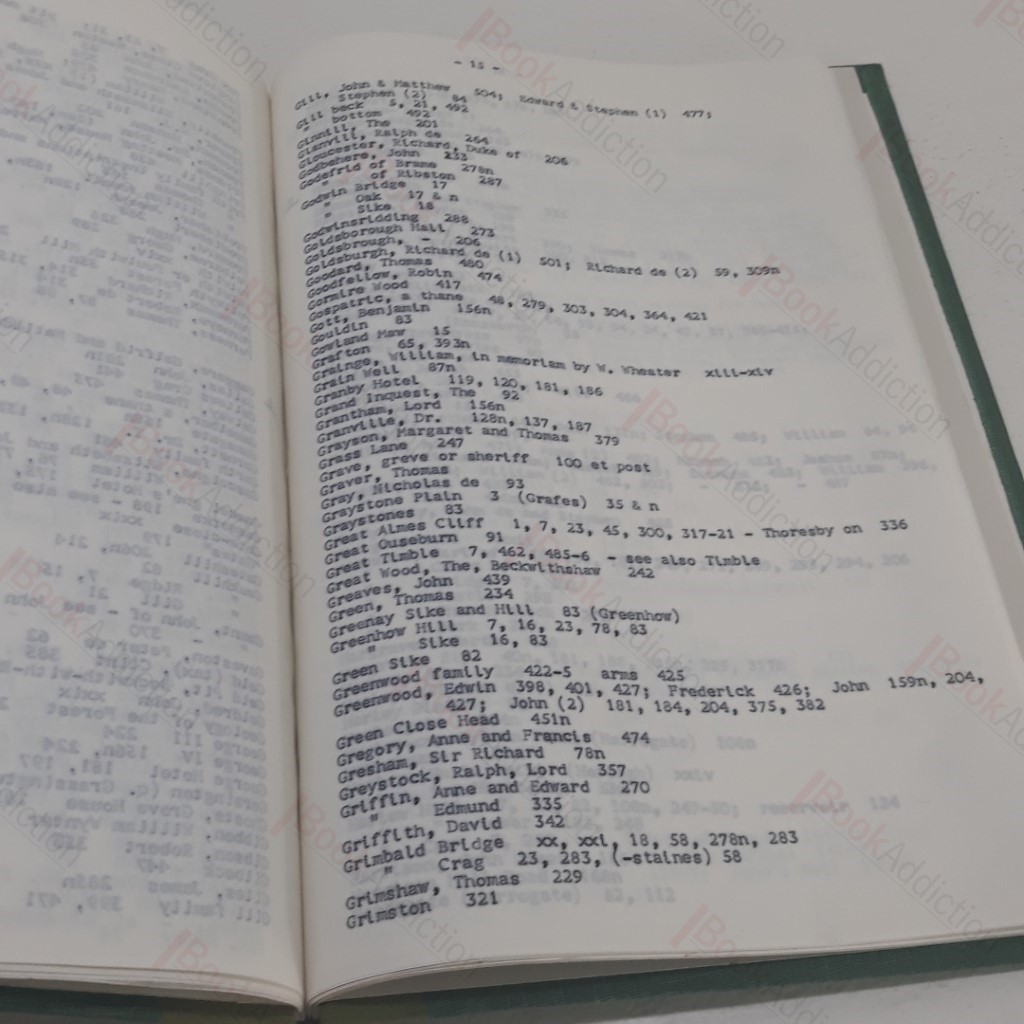 - 15 -
Gill, John & Matthew 504; Edward & Stephen (1) 477;
Stephen (2) 84
Gill beck 5, 21, 492
" bottom 492
Ginnill, The 201
Glanvill, Ralph de 264
Gloucester, Richard, Duke of 206
Godbehere, John 233
Godefrid of Brame 278n
" of Ribston 287
Godwin Bridge 17
" Oak 17 & n
" Sike 18
Godwinsridding 288
Goldsborough Hall 273
Goldsbrough, - 206
Goldsburgh, Richard de (1) 501; Richard de (2) 59, 309n
Goodard, Thomas 480
Goodfellow, Robin 474
Gormire Wood 417
Gospatric, a thane 48, 279, 303, 304, 364, 421
Gott, Benjamin 156n
Gouldin 83
Gowland Maw 15
Grafton 65, 393n
Grainge, William, in memoriam by W. Wheater xiii-xiv
Grain Well 87n
Granby Hotel 119, 120, 181, 186
Grand Inquest, The 92
Grantham, Lord 156n
Granville, Dr. 128n, 137, 187
Grayson, Margaret and Thomas 379
Grass Lane 247
Grave, greve or sheriff 100 et post
Graver, Thomas
Gray, Nicholas de 93
Graystone Plain 3 (Grafes) 35 & n
Graystones 83
Great Almes Cliff 1, 7, 23, 45, 300, 317-21 - Thoresby on 336
Great Ouseburn 91
Great Timble 7, 462, 485-6 - see also Timble
Great Wood, The, Beckwithshaw 242
Greaves, John 439
Green, Thomas 234
Greenay Sike and Hill 83 (Greenhow)
Greenhow Hill 7, 16, 23, 78, 83
" Sike 16, 83
Green Sike 82
Greenwood family 422-5 arms 425
Greenwood, Edwin 398, 401, 427; Frederick 426; John 159n, 204,
427; John (2) 181, 184, 204, 375, 382
Green Close Head 451n
Gregory, Anne and Francis 474
Gresham, Sir Richard 78n
Greystock, Ralph, Lord 357
Griffin, Anne and Edward 270
" Edmund 335
Griffith, David 342
Grimbald Bridge xx, xxi, 18, 58, 278n, 283
" Crag 23, 283, (-staines) 58
Grimshaw, Thomas 229
Grimston 321